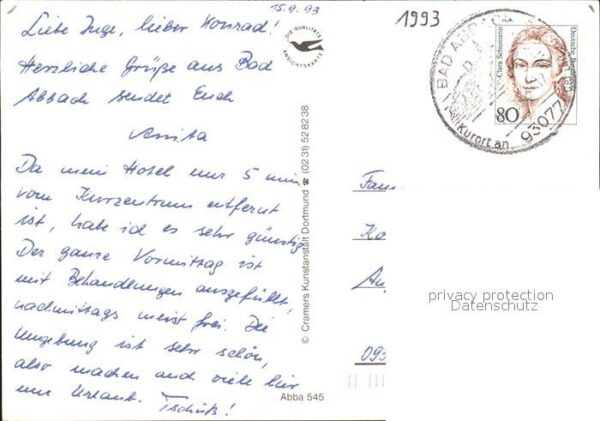 15.9.93
1993
Liebe Inge, lieber Konrad!
Herzliche Grüße aus Bad
Abbach sendet Euch
Anita
Da mein Hotel nur 5 min
vom Kurzentrum entfernt
ist, habe ich es sehr günstig
Der ganze Vormittag ist
mit Behandlungen ausgefüllt,
nachmittags meist frei. Die
Umgebung ist sehr schön,
also machen auch viele hier
nur Urlaub. Tschüß!
DIE QUALITÄTS
ANSICHTSKARTE
© Cramers Kunstanstalt Dortmund ☎ (0231) 528238
Abba 545
BAD ABBACH
Kurort an
93077
Clara Schumann
Deutsche Bundespost
80
Fam
Ko
093
privacy protection
Datenschutz